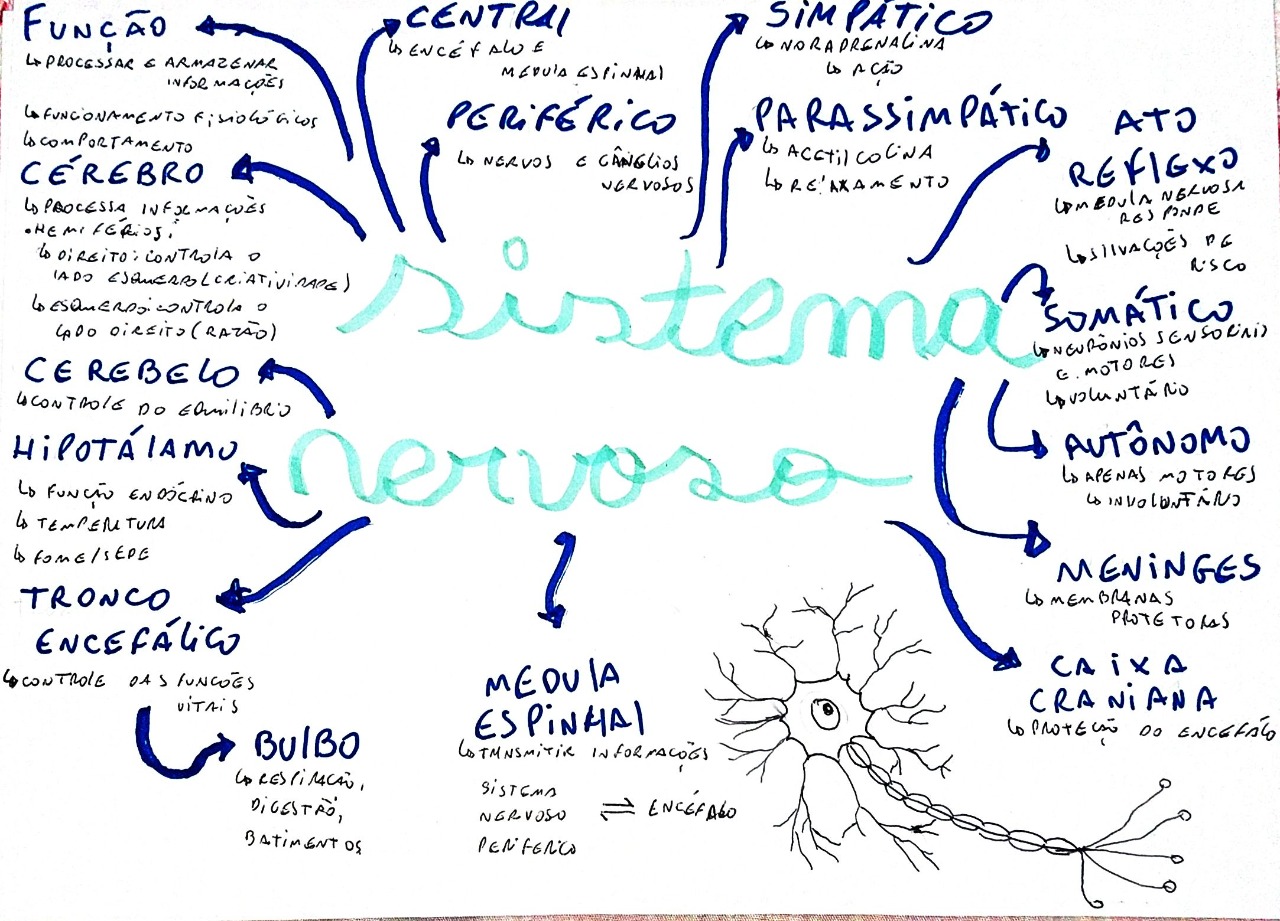 FUNÇÃO
↳ PROCESSAR E ARMAZENAR
INFORMAÇÕES
↳ FUNCIONAMENTO FISIOLÓGICOS
↳ COMPORTAMENTO
CÉREBRO
↳ PROCESSA INFORMAÇÕES
• HEMIFÉRIOS:
↳ DIREITO: CONTROLA O
LADO ESQUERDO (CRIATIVIDADE)
↳ ESQUERDO: CONTROLA O
LADO DIREITO (RAZÃO)
CEREBELO
↳ CONTROLE DO EQUILIBRIO
HIPOTÁLAMO
↳ FUNÇÃO ENDÓCRINO
↳ TEMPERETURA
↳ FOME/SEDE
TRONCO
ENCEFÁLICO
↳ CONTROLE DAS FUNCOÕES
VITAIS
BULBO
↳ RESPIRAÇÃO,
DIGESTÃO,
BATIMENTOS
CENTRAL
↳ ENCÉFALO E
MEDULA ESPINHAL
PERIFÉRICO
↳ NERVOS E GÂNGLIOS
NERVOSOS
SIMPÁTICO
↳ NORADRENALINA
↳ AÇÃO
PARASSIMPÁTICO
↳ ACETILCOLINA
↳ RELAXAMENTO
ATO
REFLEXO
↳ MEDULA NERVOSA
RESPONDE
↳ SITUAÇÕES DE
RISCO
sistema
nervoso
SOMÁTICO
↳ NEURÔNIOS SENSORIAIS
E MOTORES
↳ VOLUNTÁRIO
AUTÔNOMO
↳ APENAS MOTORES
↳ INVOLUNTÁRIO
MENINGES
↳ MEMBRANAS
PROTETORAS
CAIXA
CRANIANA
↳ PROTEÇÃO DO ENCEFÁLO
MEDULA
ESPINHAL
↳ TRANSMITIR INFORMAÇÕES
SISTEMA
NERVOSO ⇌ ENCÉFALO
PERIFERICO